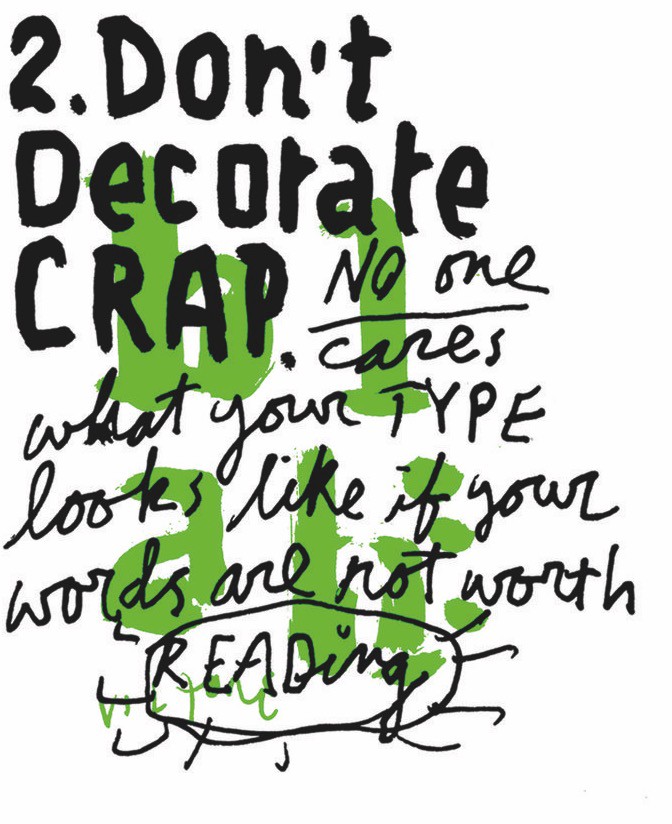 2. Don't
Decorate
CRAP. No one
cares
what your TYPE
looks like if your
words are not worth
READing
bl
ah